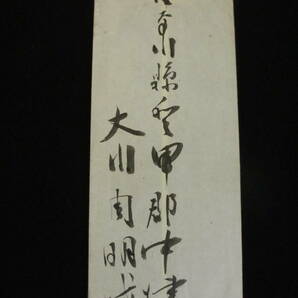 奈川縣愛甲郡中津
大川周明